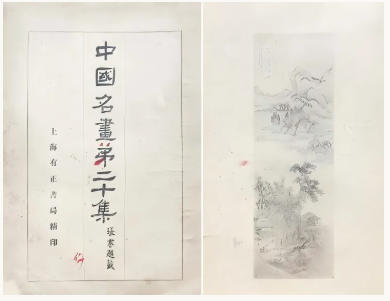 中國名畫第二十集
張謇題籤
上海有正書局精印